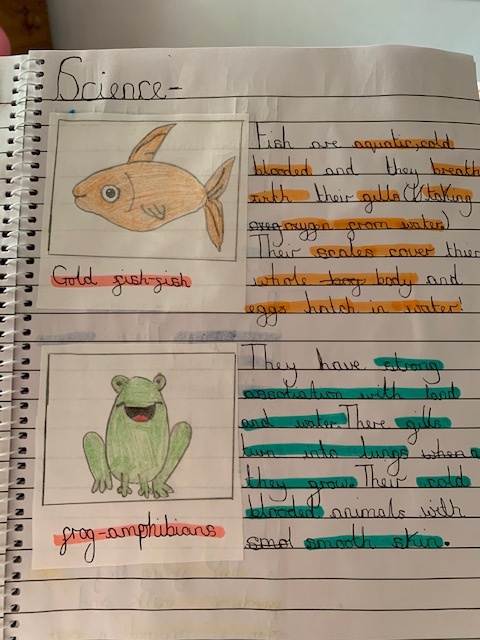 Science-
Fish are aquatic, cold
blooded and they breath
with their gills (taking
oxygen from water)
Their scales cover thier
whole body and
eggs hatch in water!
Gold fish-fish
They have strong
association with land
and water. There gills
turn into lungs when
they grow. Their cold
blooded animals with
smooth skin.
frog-amphibians